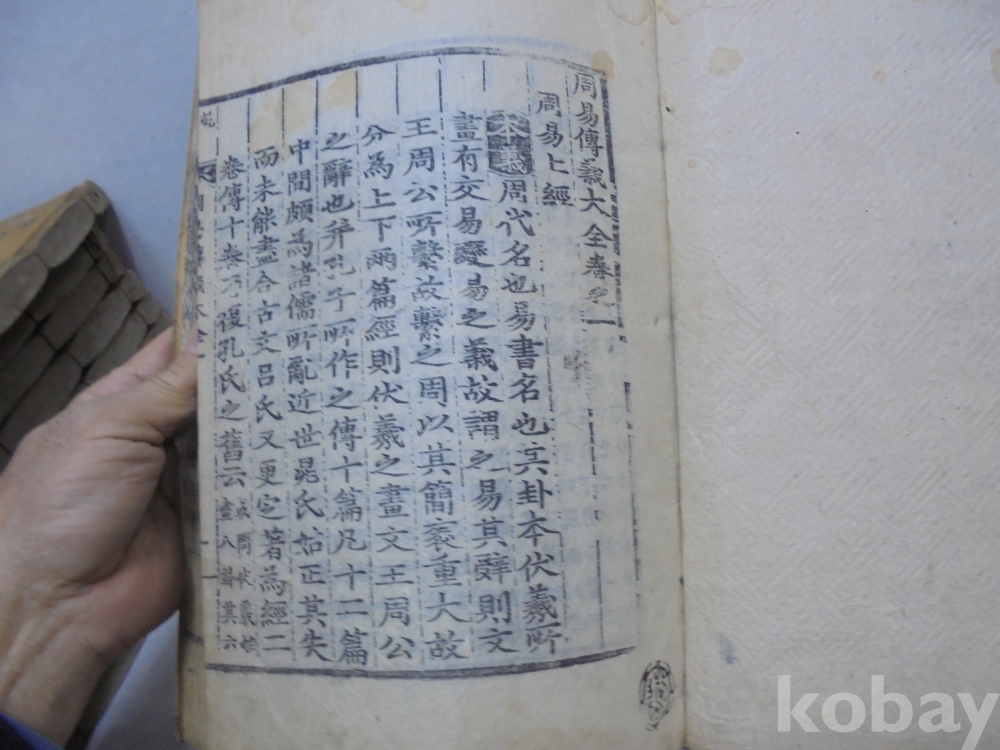 周易傳義大全卷之一
周易上經
本義周代名也易書名也其卦本伏羲所
畫有交易變易之義故謂之易其辭則文
王周公所繫故繫之周以其簡袠重大故
分為上下兩篇經則伏羲之畫文王周公
之辭也幷孔子所作之傳十篇凡十二篇
中間頗為諸儒所亂近世晁氏始正其失
而未能盡合古文呂氏又更定著為經二
卷傳十卷乃復孔氏之舊云
或問伏羲始
畫八卦其六
kobay